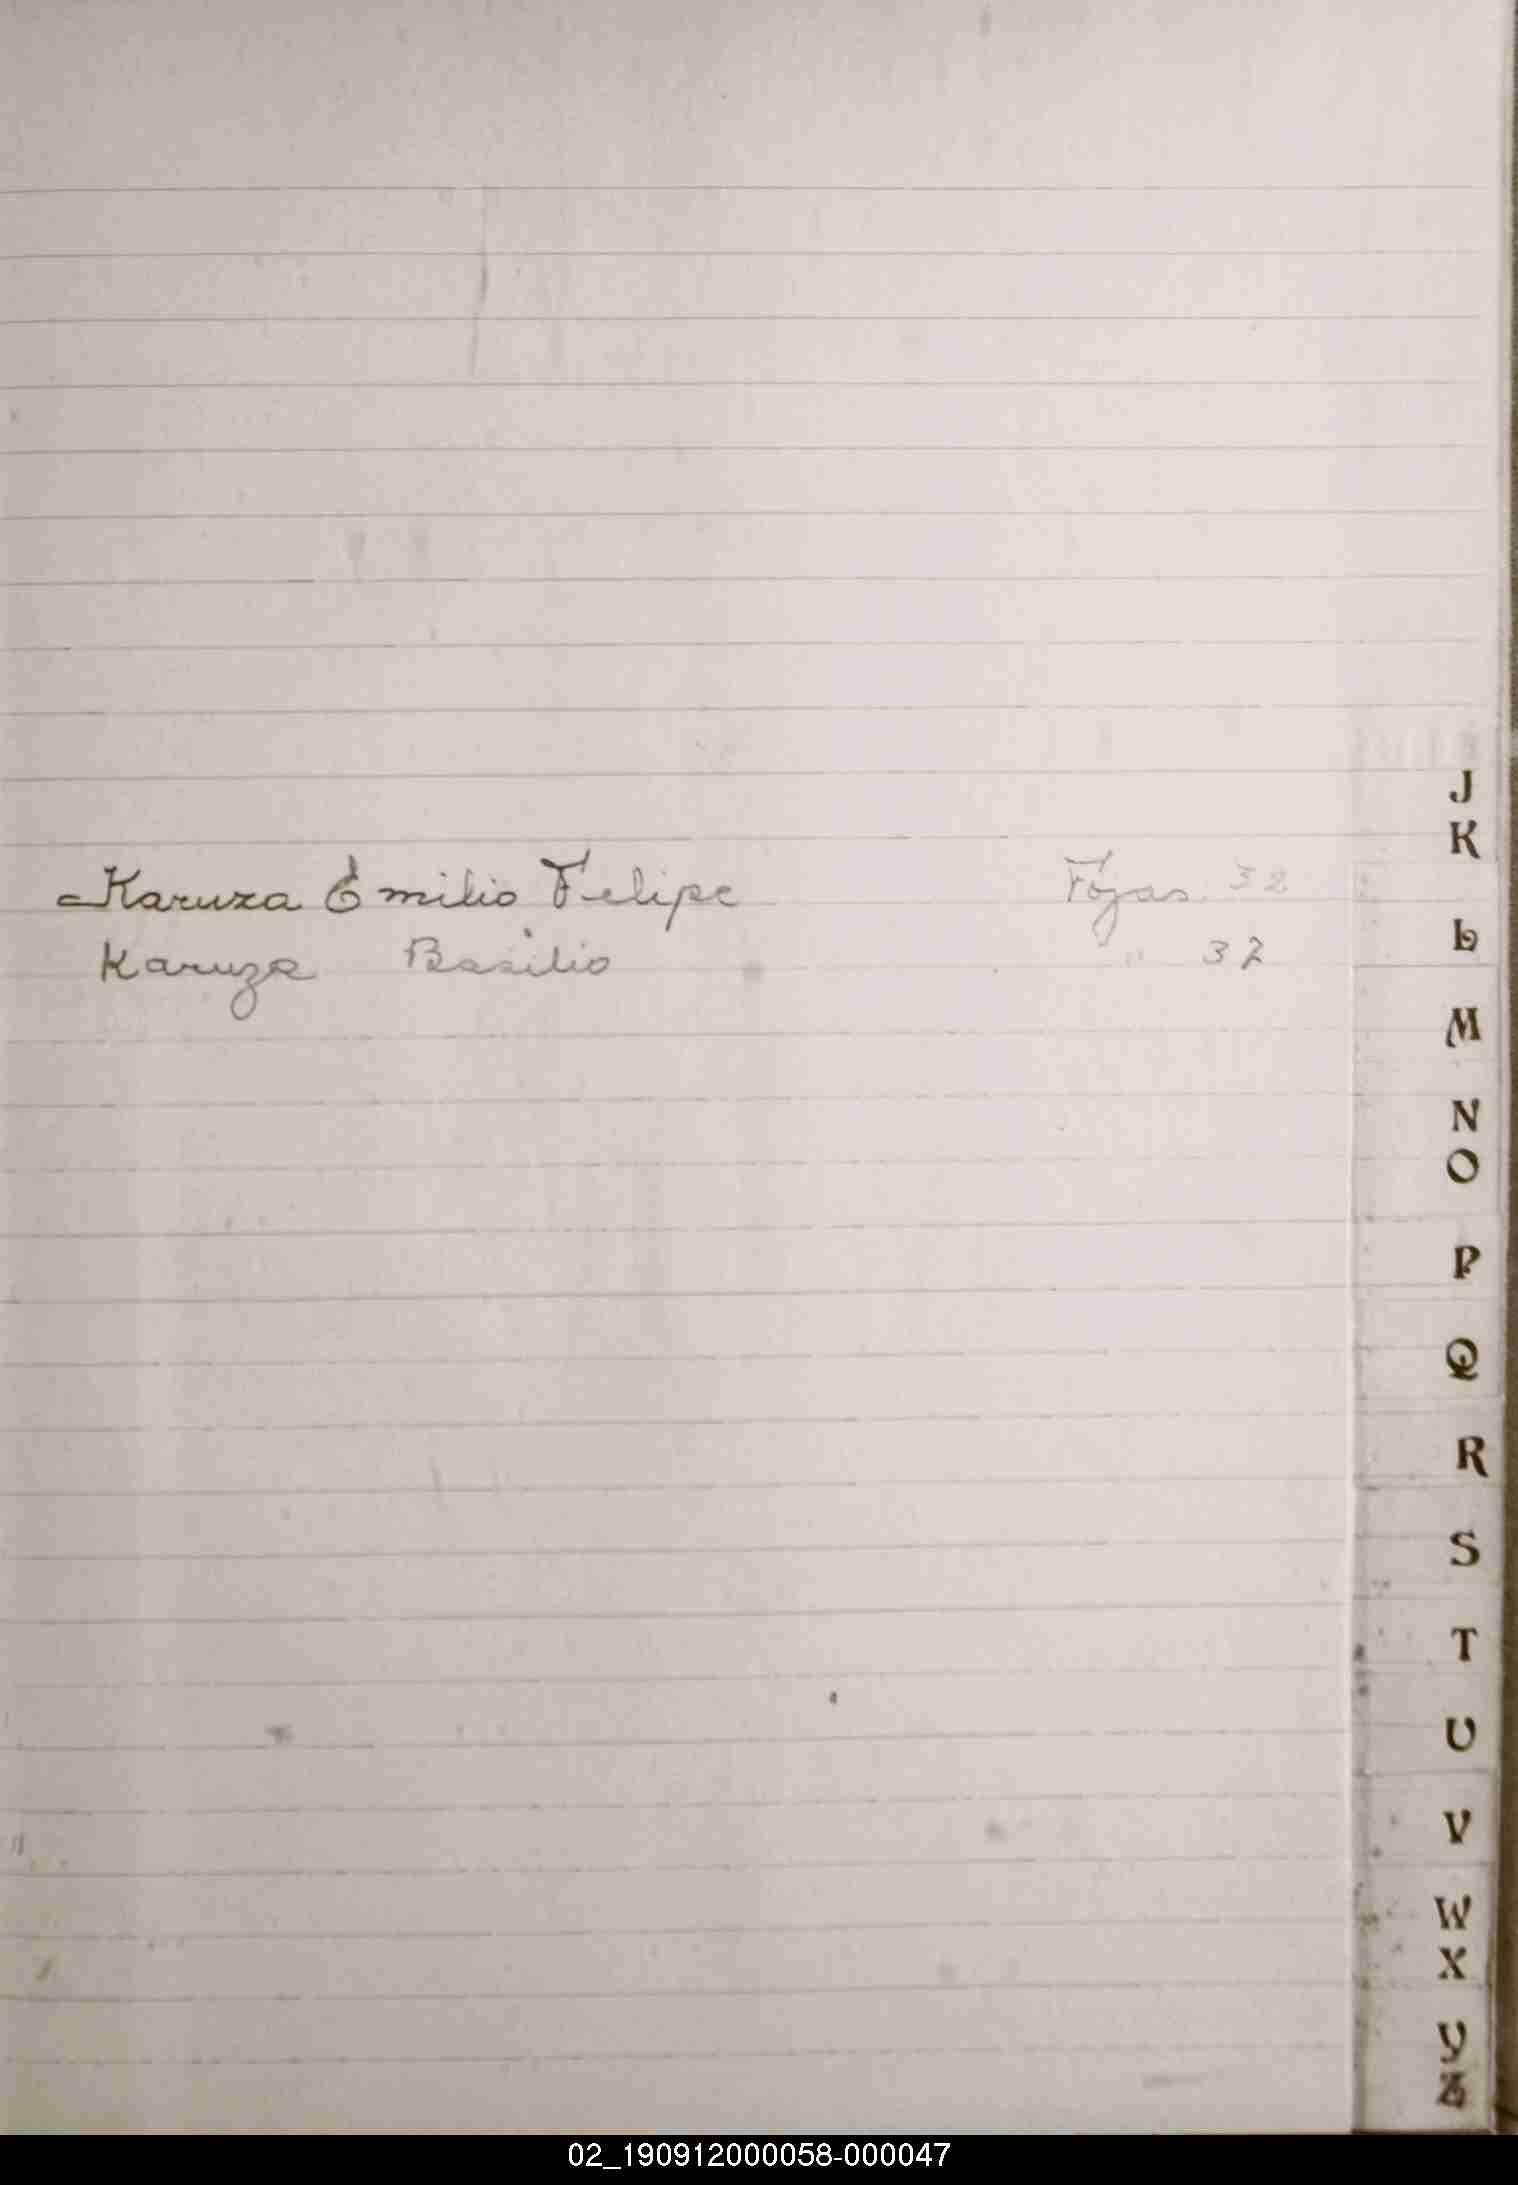 Karuza Emilio Felipe Fojas 32
Karuza Basilio " 32
J
K
L
M
N
O
P
Q
R
S
T
U
V
W
X
Y
Z
02_190912000058-000047